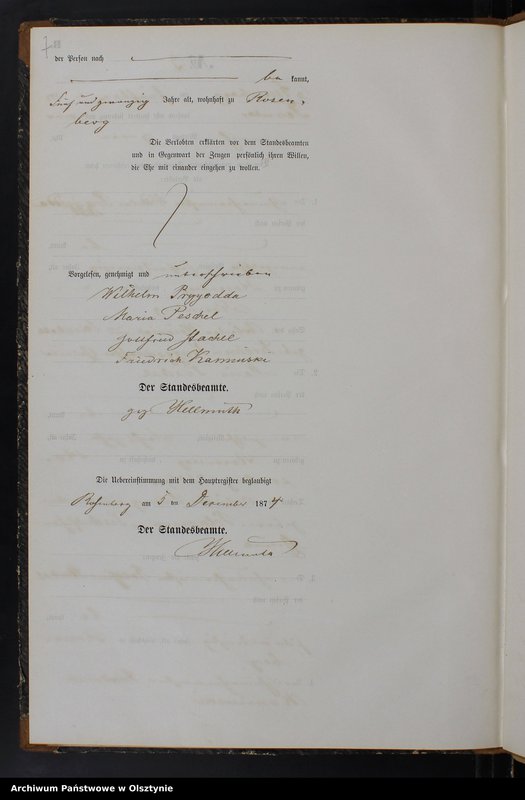 der Person nach
be kannt,
Fünf und zwanzig Jahre alt, wohnhaft zu Rosen-
berg
Die Verlobten erklärten vor dem Standesbeamten
und in Gegenwart der Zeugen persönlich ihren Willen,
die Ehe mit einander eingehen zu wollen.
Vorgelesen, genehmigt und unterschrieben
Wilhelm Przyodda
Maria Peschel
Gottfried Stachel
Friedrich Kaminski
Der Standesbeamte.
gez Hellmuth
Die Uebereinstimmung mit dem Hauptregister beglaubigt
Rosenberg am 5 ten December 1874
Der Standesbeamte.
Hellmuth
Archiwum Państwowe w Olsztynie